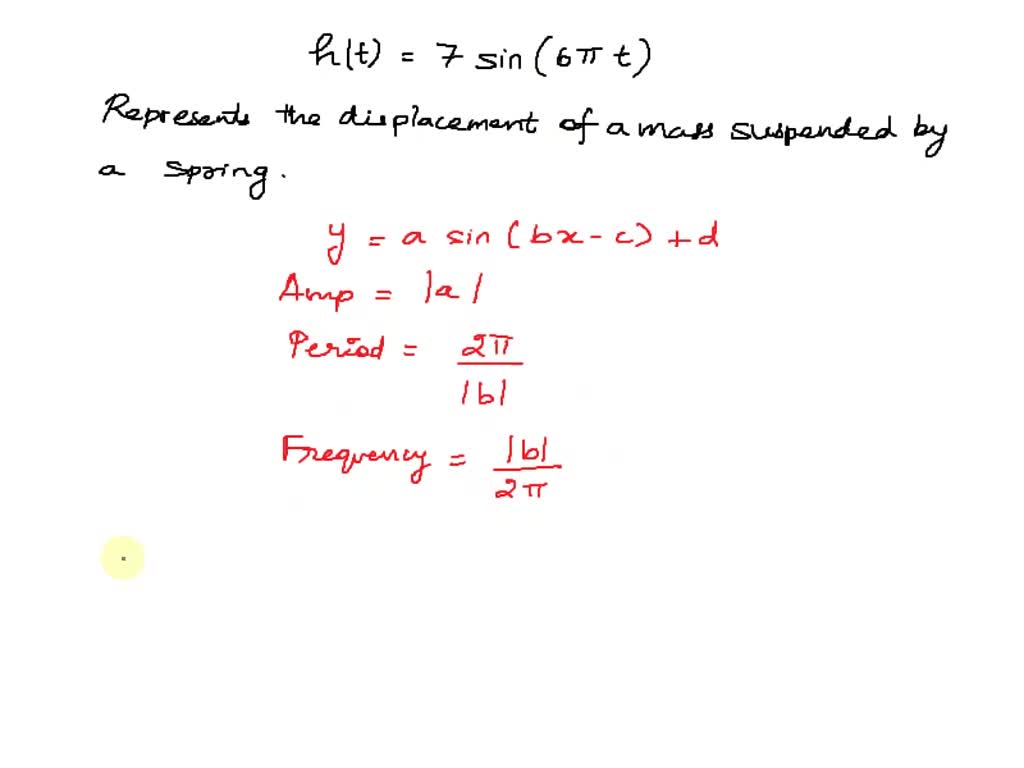 h(t) = 7 sin(6π t)
Represents the displacement of a mass suspended by
a spring.
y = a sin(bx - c) + d
Amp = |a|
Period = 2π
|b|
Frequency = |b|
2π